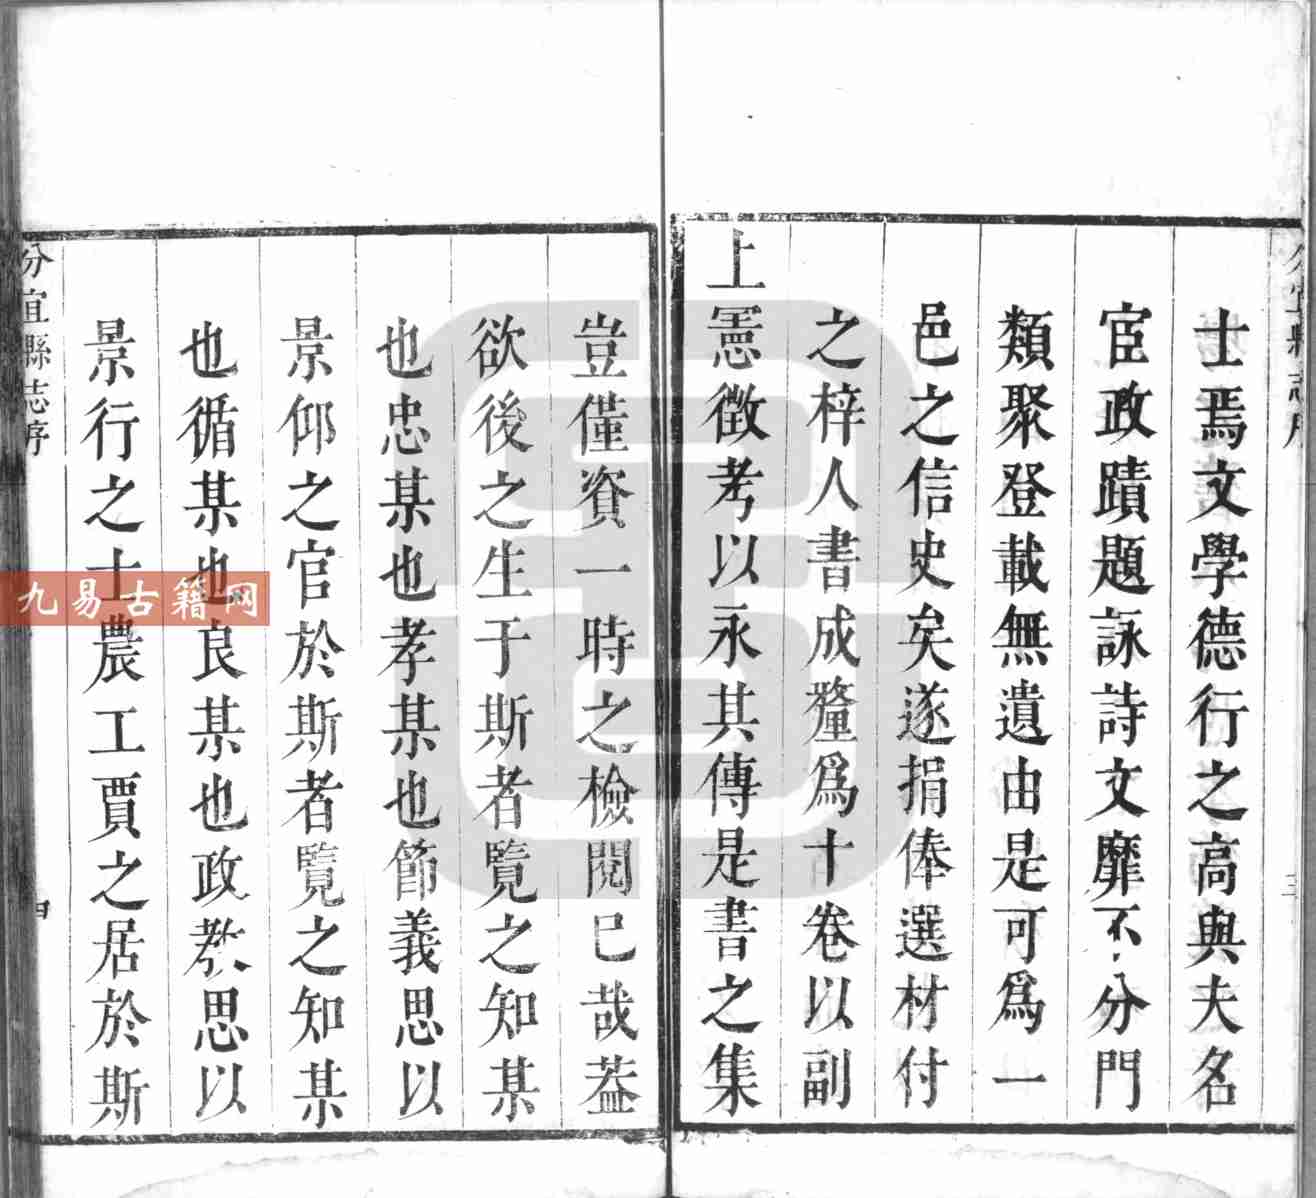 士焉文學德行之高與夫名
宦政蹟題詠詩文靡不分門
類聚登載無遺由是可爲一
邑之信史矣遂捐俸選材付
之梓人書成釐爲十卷以副
上憲徵考以永其傳是書之集
豈僅資一時之檢閱已哉葢
欲後之生于斯者覽之知某
也忠某也孝某也節義思以
景仰之官於斯者覽之知某
也循某也良某也政教思以
景行之士農工賈之居於斯
分宜縣志序
四
九易古籍网